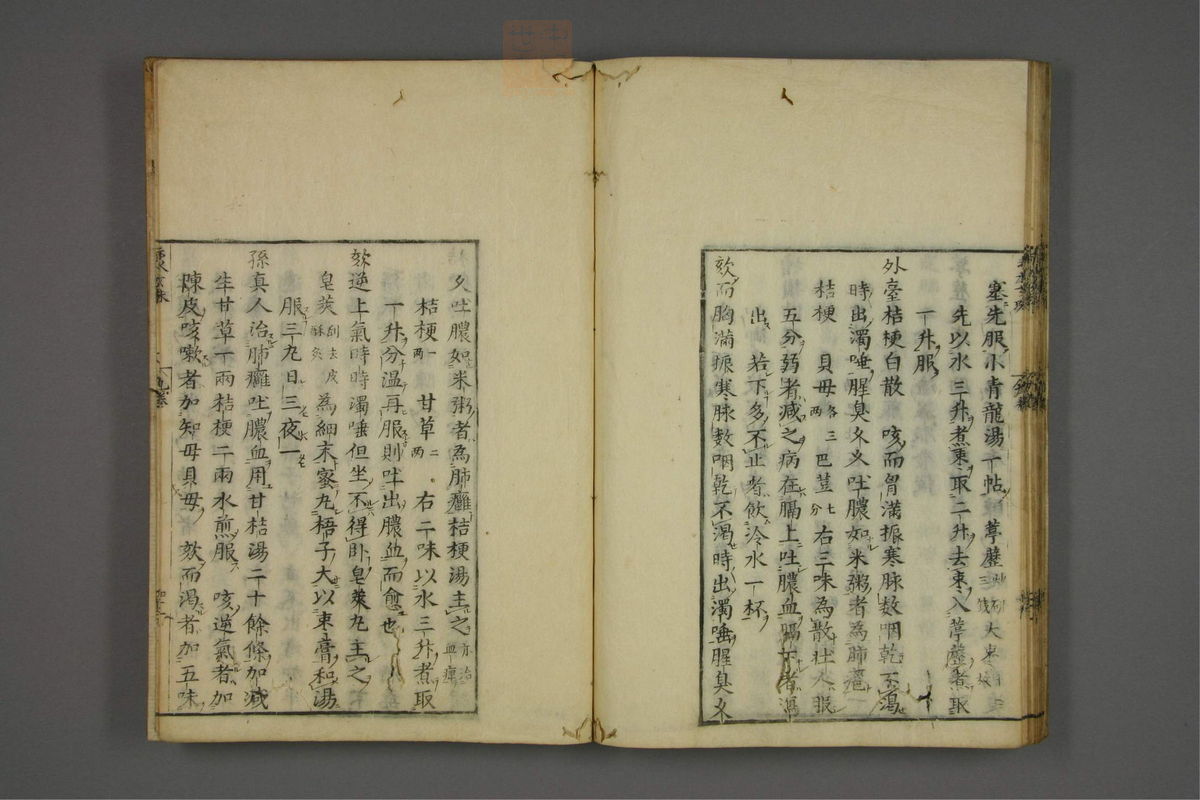 塞先服小青龍湯一帖 葶藶 大棗
先以水三升煮棗取二升去棗入葶藶煮取
一升服
外臺桔梗白散 咳而胷滿振寒脉数咽乾不渴
時出濁唾腥臭久久吐膿如米粥者為肺癰
桔梗 貝母各三兩 巴荳七分 右三味為散壮人服
五分弱者减之病在膈上吐膿血膈下者瀉
出 若下多不止者飲冷水一杯
欬而胸滿振寒脉数咽乾不渴時出濁唾腥臭久
久吐膿如米粥者為肺癰桔梗湯主之 亦治血痺
桔梗一兩 甘草二兩 右二味以水三升煮取
一升分温再服則吐出膿血而愈也
欬逆上氣時時濁唾但坐不得卧皂莢丸主之
皂莢 刮去皮酥炙 為細末蜜丸梧子大以棗膏和湯
服三丸日三夜一
孫真人治肺癰吐膿血用甘桔湯二十餘條加减
生甘草一兩桔梗二兩水煎服 咳逆氣者加
陳皮咳嗽者加知母貝母 欬而渴者加五味